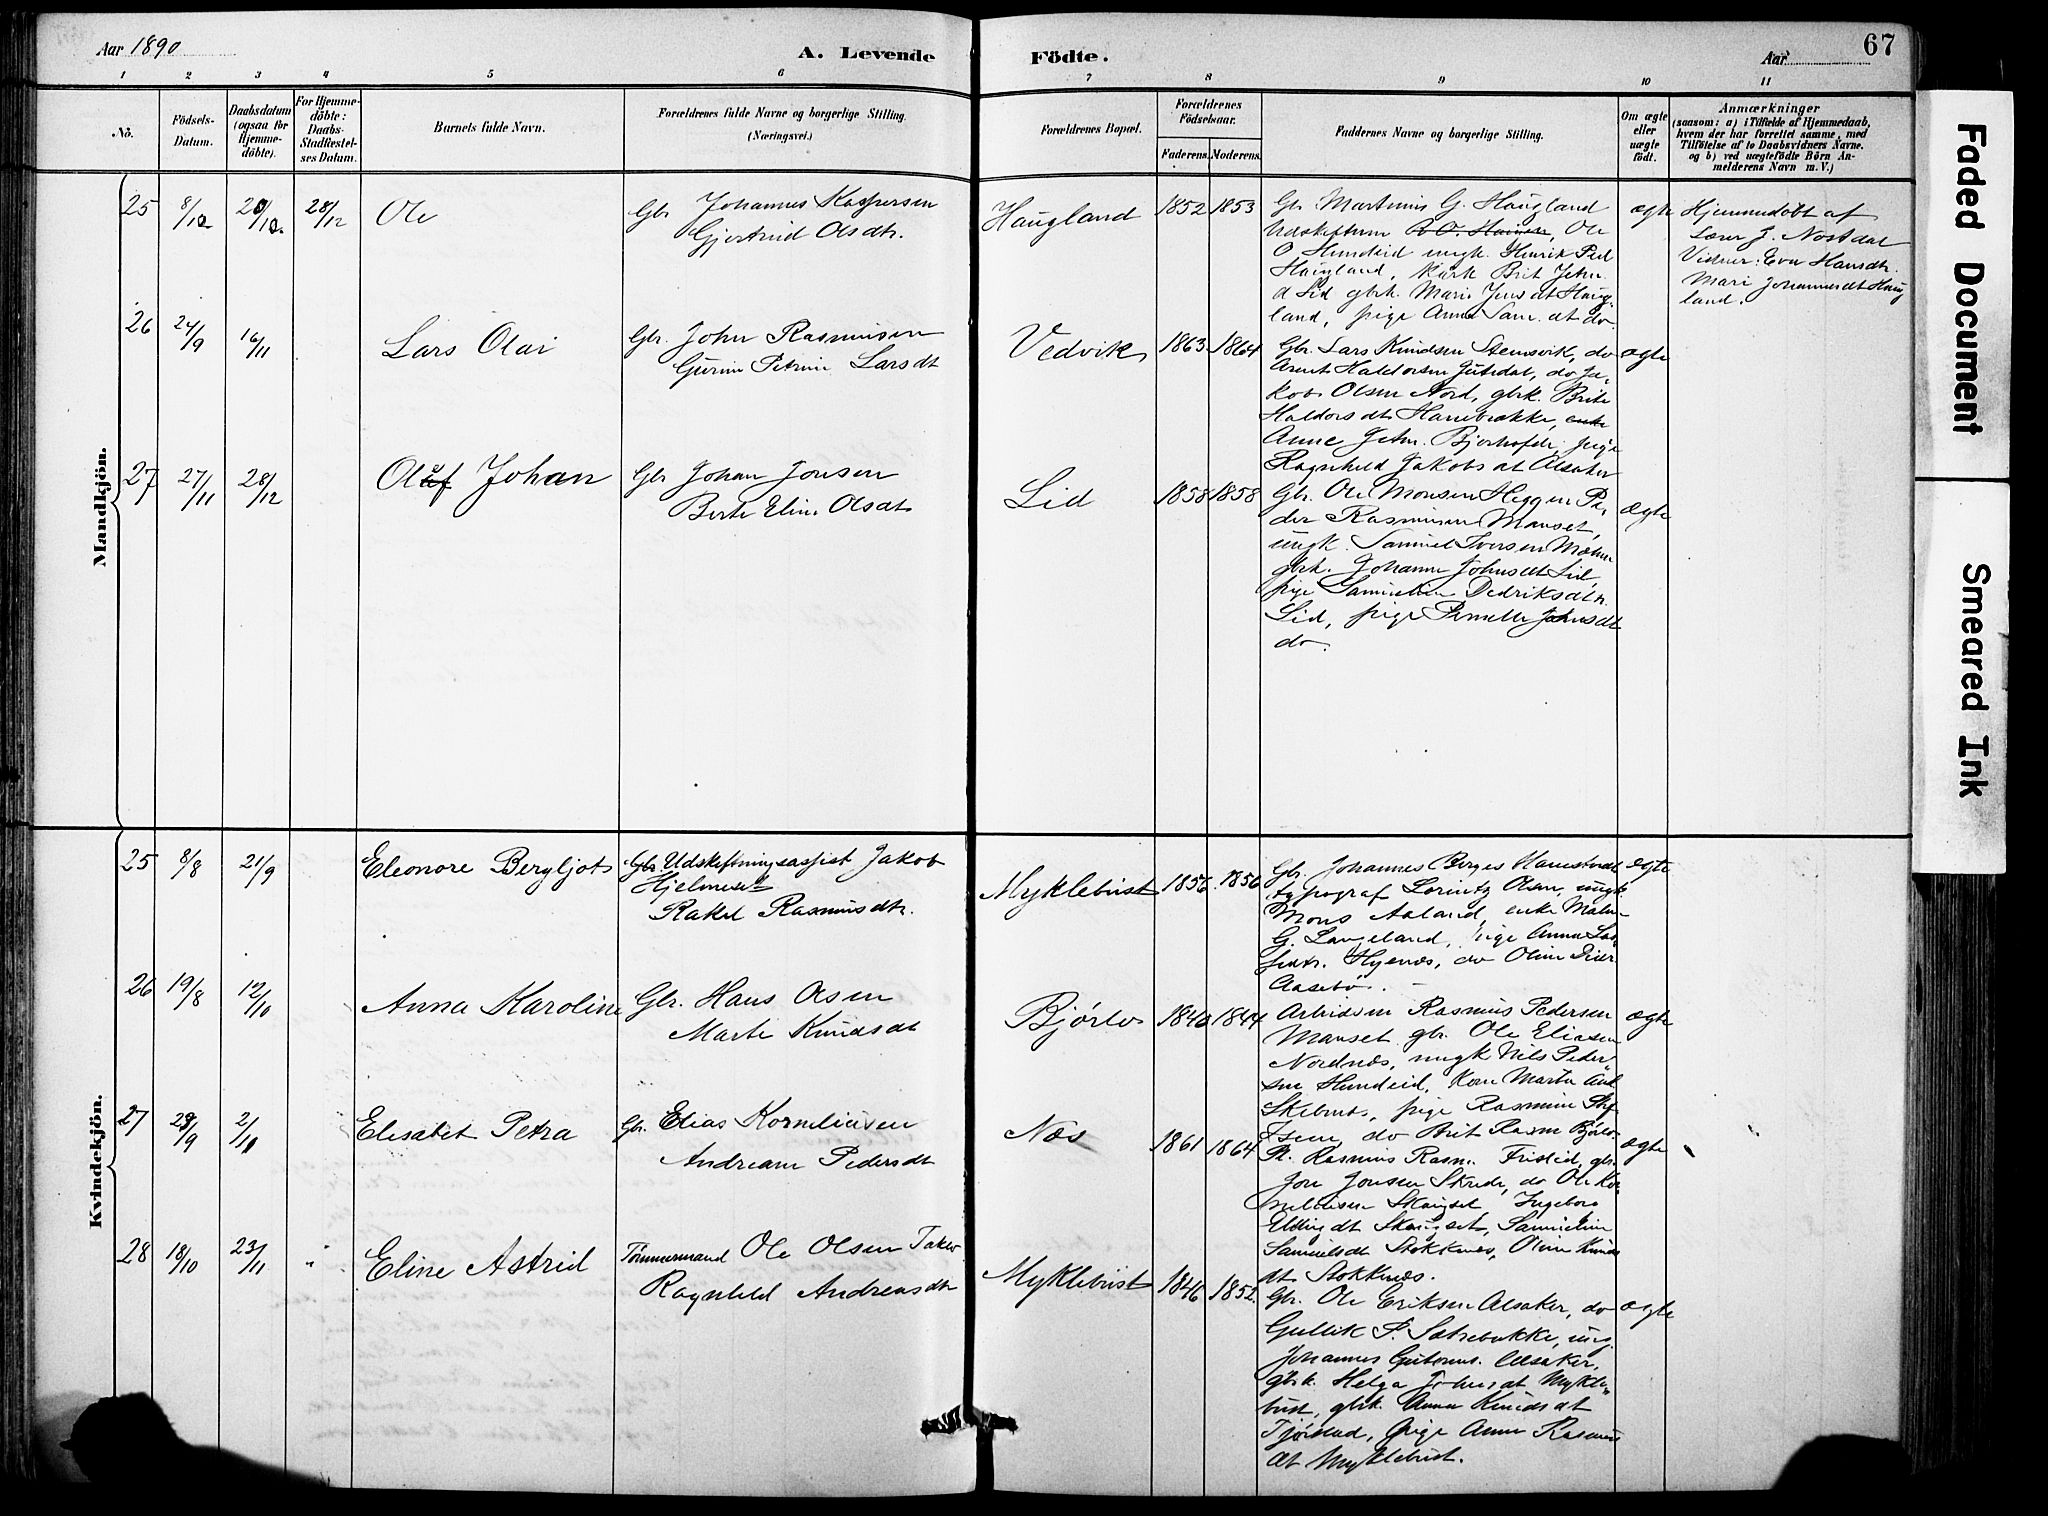 Aar 1890
A. Levende
Födte.
Aar
67
1 2 3 4 5 6 7 8 9 10 11
No.
Födsels-
Datum.
Daabsdatum
(ogsaa for
Hjemme-
döbte).
For Hjemme-
döbte:
Daabs-
Stadfestel-
ses Datum.
Barnets fulde Navn.
Forældrenes fulde Navne og borgerlige Stilling.
(Næringsvei.)
Forældrenes Bopæl.
Forældrenes
Födselsaar.
Faderens. Moderens.
Faddernes Navne og borgerlige Stilling.
Om ægte
eller
uægte
födt.
Anmærkninger
(saasom: a) i Tilfælde af Hjemmedaab,
hvem der har forrettet samme, med
Tilföielse af to Daabsvidners Navne.
og b) ved uægtefödte Börn An-
melderens Navn m. V.)
Mandkjön.
25 8/12 28/12 Ole
Gbr Johannes Kaspersen
Gjertrud Olsdtr.
Haugland 1852 1853
Gbr. Martinus G. Haugland
Ole
O Hundeid ungk. Henrik Ped
Haugland, Brit Jetm.
d Lid gbrk. Marie Jens dt Haug-
land, pige Anna Sam. dt do.
ægte
Hjemmedøbt af
Lærer J. Nostdal
Vidner: Eva Hansdtr.
Mari Johannesdt Haug
land.
26 24/9 16/11 Lars Olai
Gbr. John Rasmussen
Gurine Petrine Larsdt
Vedvik 1863 1864
Gbr. Lars Knudsen Stensvik, do
Arnt Haldorsen Gutsdal, do Ja-
kob Olsen Nord, gbrk. Brite
Haldorsdt Hanebrække, enke
Anne Jetm. pige
Ragnhild Jakobsdt Alsaker
ægte
27 27/11 28/12 Oluf Johan
Gbr Johan Jonsen
Berte Eline Olsdt
Lid 1858 1858
Gbr. Ole Monsen Heggen Pe-
der Rasmussen Manset,
ungk. Samuel Iversen
gbrk. Johanne Johnsdt Lid,
pige Samueline Dedriksdtr.
Lid, pige Pernelle Johnsdt
do.
ægte
Kvindekjön.
25 8/8 21/9 Eleonore Bergljot
Gbr. Udskiftningsassist Jakob
Hjelmeset
Rakel Rasmusdtr.
Myklebust 1856 1856
Gbr. Johannes Berges
typograf Lorentz Olsen, ungk.
Mons Aaland, enke
G. Langeland, pige Anna
Hyenes, do Oline
Aasebø.
ægte
26 19/8 12/10 Anna Karoline
Gbr. Hans Olsen
Marte Knudsdt
Bjørlo 1840 1844
Arbeidsm Rasmus Pedersen
Manset gbr. Ole Eliasen
Nordnæs, ungk Nils Peder-
sen Hundeid, Kone Marta
pige Rasmine
do Brit Rasm Bjørlo.
ægte
27 29/9 2/11 Elisabet Petra
Gbr. Elias Korneliusen
Andreane Pedersdt
Næs 1861 1864
Rasmus Rasm. Fristeid, gbr.
Jon Jonsen Skrede, do Ole Kor-
neliusen Skaarset, Ingeborg
Skaarset, Samueline
Samuelsdt Stokknes, Oline Knuds
dt Stokknes.
ægte
28 18/10 23/11 " Eline Astrid
Tømmermand Ole Olsen Taklo
Ragnhild Andreasdtr
Myklebust 1846 1852
Gbr. Ole Eriksen Alsaker, do
Gullik P. Sætrebakke, ung.
Johannes Guttorms. Alsaker,
gbrk. Helga Johnsdt Mykle-
bust, gbrk. Anna Knudsdt
Tjørstad, Pige Anne Rasmus
dt Myklebust.
ægte
Faded Document
Smeared Ink